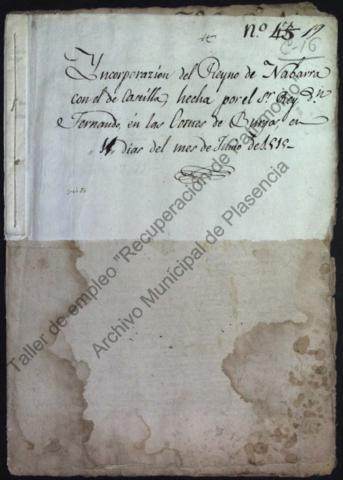 n.º 45 19
C-16
Yncorporazion del Reyno de Nabarra
con el de Castilla, hecha por el Sr. Rey d.n
Fernando, en las Cortes de Burgos, en
11 dias del mes de Junio de 1515
Taller de empleo "Recuperación de Patrimonio"
Archivo Municipal de Plasencia